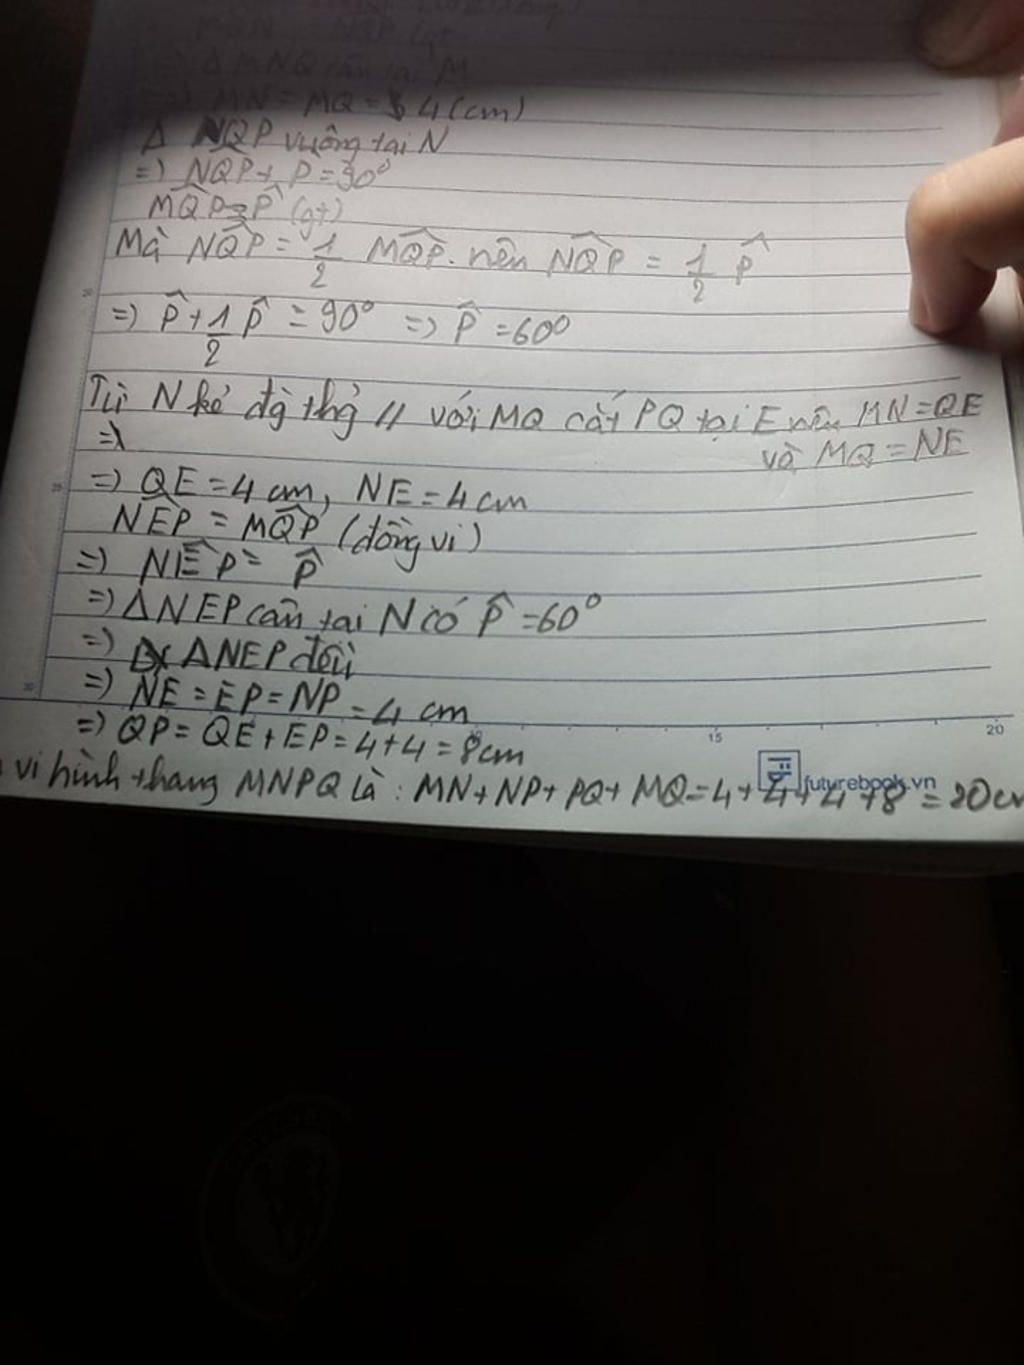 MQN = NQP (gt
ΔMNQ cân tại M
=> MN = MQ = 4 (cm)
Δ NQP vuông tại N
=> NQP + P = 90°
MQP = P (gt)
Mà NQP = 1/2 MQP. nên NQP = 1/2 P
=> P + 1/2 P = 90° => P = 60°
Từ N kẻ đg thg // với MQ cắt PQ tại E nên MN = QE
=> và MQ = NE
=> QE = 4 cm, NE = 4 cm
NEP = MQP (đồng vi)
=> NEP = P
=> ΔNEP cân tại N có P = 60°
=> ΔNEP đều
=> NE = EP = NP = 4 cm
=> QP = QE + EP = 4 + 4 = 8cm
vi hình thang MNPQ là : MN + NP + PQ + MQ = 4 + 4 + 4 + 8 = 20 cm
15
20
futurebook.vn